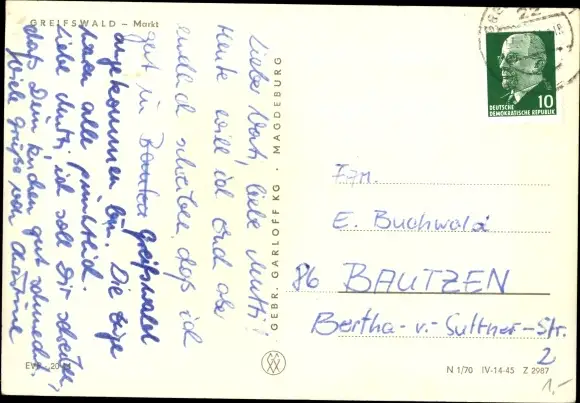 GREIFSWALD – Markt
Lieber Vati, liebe Mutti!
Heute will ich Euch aber
endlich schreiben, daß ich
gut in Bautzen Greifswald
angekommen bin. Die Züge
waren alle pünktlich.
Liebe Mutti, ich soll Dir schreiben,
daß Dein Kuchen gut schmeckt.
Viele Grüße von
GEBR. GARLOFF KG · MAGDEBURG
22
DEUTSCHE
DEMOKRATISCHE REPUBLIK
10
Fam.
E. Buchwald
86 BAUTZEN
Bertha-v.-Suttner-Str.
2
N 1/70 IV-14-45 Z 2987
1,-